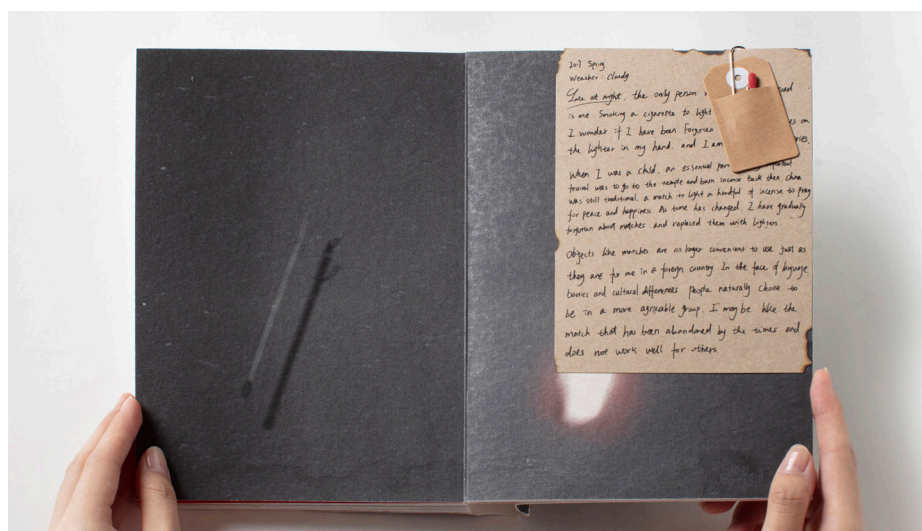 2017 Spring
Weather: Cloudy
Late at night, the only person
is me smoking a cigarette to light
I wonder if I have been Forgotten on
the lighter in my hand, and I am
When I was a child, an essential
festival was to go to the temple and burn incense Back then, China
was still traditional, a match to light a handful of incense to pray
for peace and happiness As time has changed I have gradually
forgotten about matches and replaced them with lighters
Objects like matches are no longer convenient to use just as
they are for me in a foreign country In the face of language
barriers and cultural differences people naturally choose to
be in a more agreeable group. I may be like the
match that has been abandoned by the times and
does not work well for others